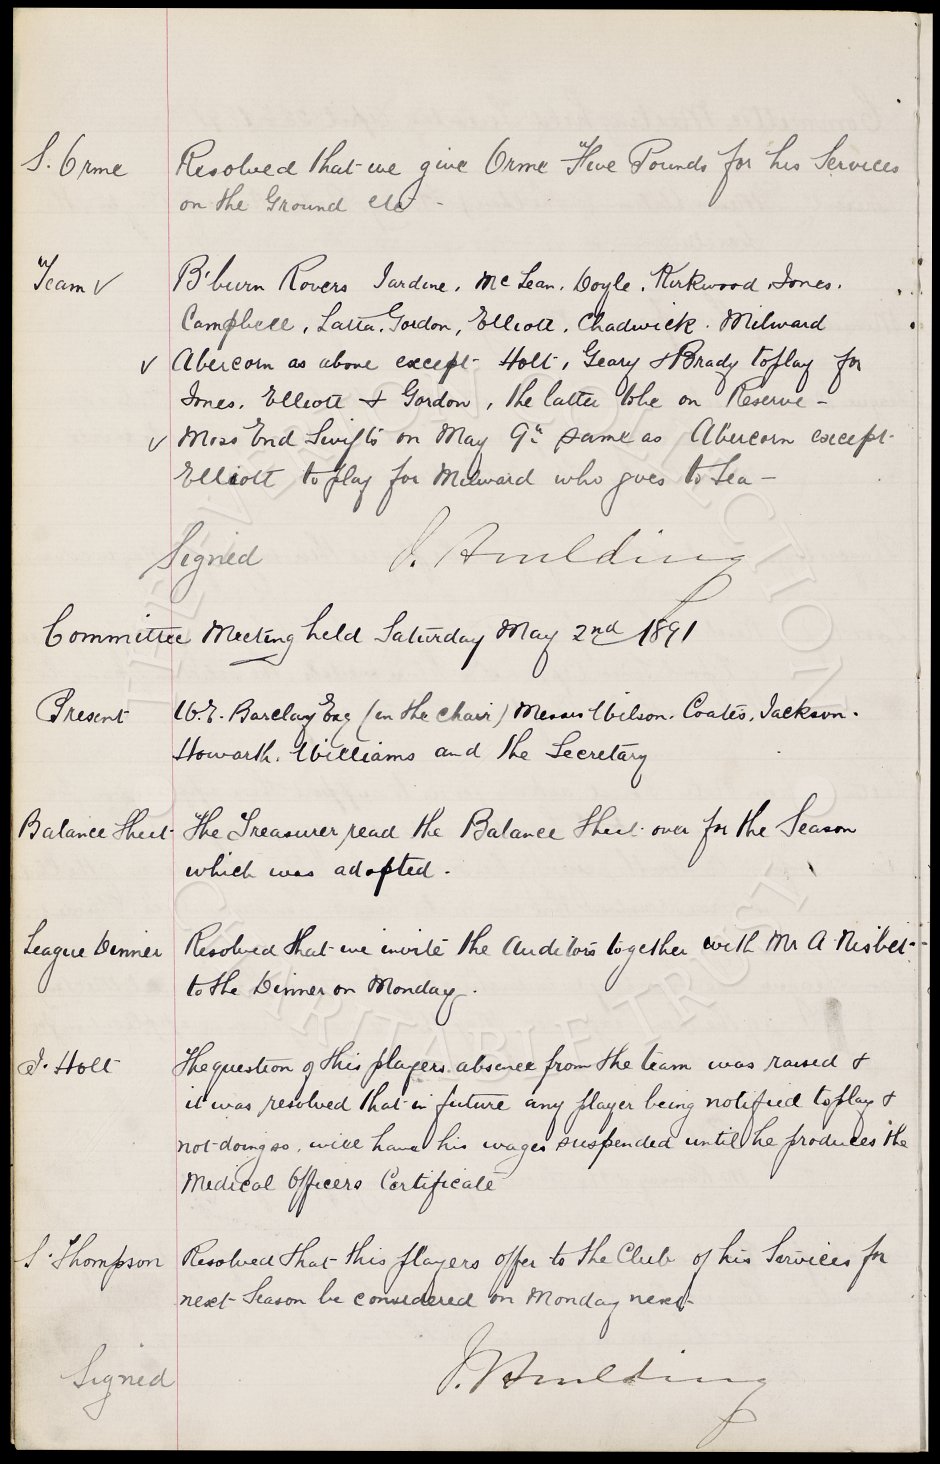 S. Orme Resolved that we give Orme Five Pounds for his Services
on the Ground etc -
Team ✓ B'burn Rovers Jardine, McLean, Doyle, Kirkwood, Jones.
Campbell, Latta, Gordon, Elliott, Chadwick. Milward
✓ Abercorn as above except Holt, Geary & Brady to play for
Jones, Elliott & Gordon, the latter to be on Reserve -
✓ Moss End Swifts on May 9th same as Abercorn except
Elliott to play for Milward who goes to Sea -
Signed J. Houlding
Committee Meeting held Saturday May 2nd 1891
Present W.E. Barclay Esq (in the chair) Messrs Wilson, Coates, Jackson.
Howarth, Williams and the Secretary
Balance Sheet The Treasurer read the Balance Sheet over for the Season
which was adopted.
League Dinner Resolved that we invite the Auditors together with Mr A Nisbet
to the Dinner on Monday.
J. Holt The question of this players absence from the team was raised &
it was resolved that in future any player being notified to play &
not doing so, will have his wages suspended until he produces the
Medical Officers Certificate
S. Thompson Resolved that this players offer to the Club of his Services for
next Season be considered on Monday next
Signed J. Houlding
EVERTON COLLECTION
CHARITABLE TRUST